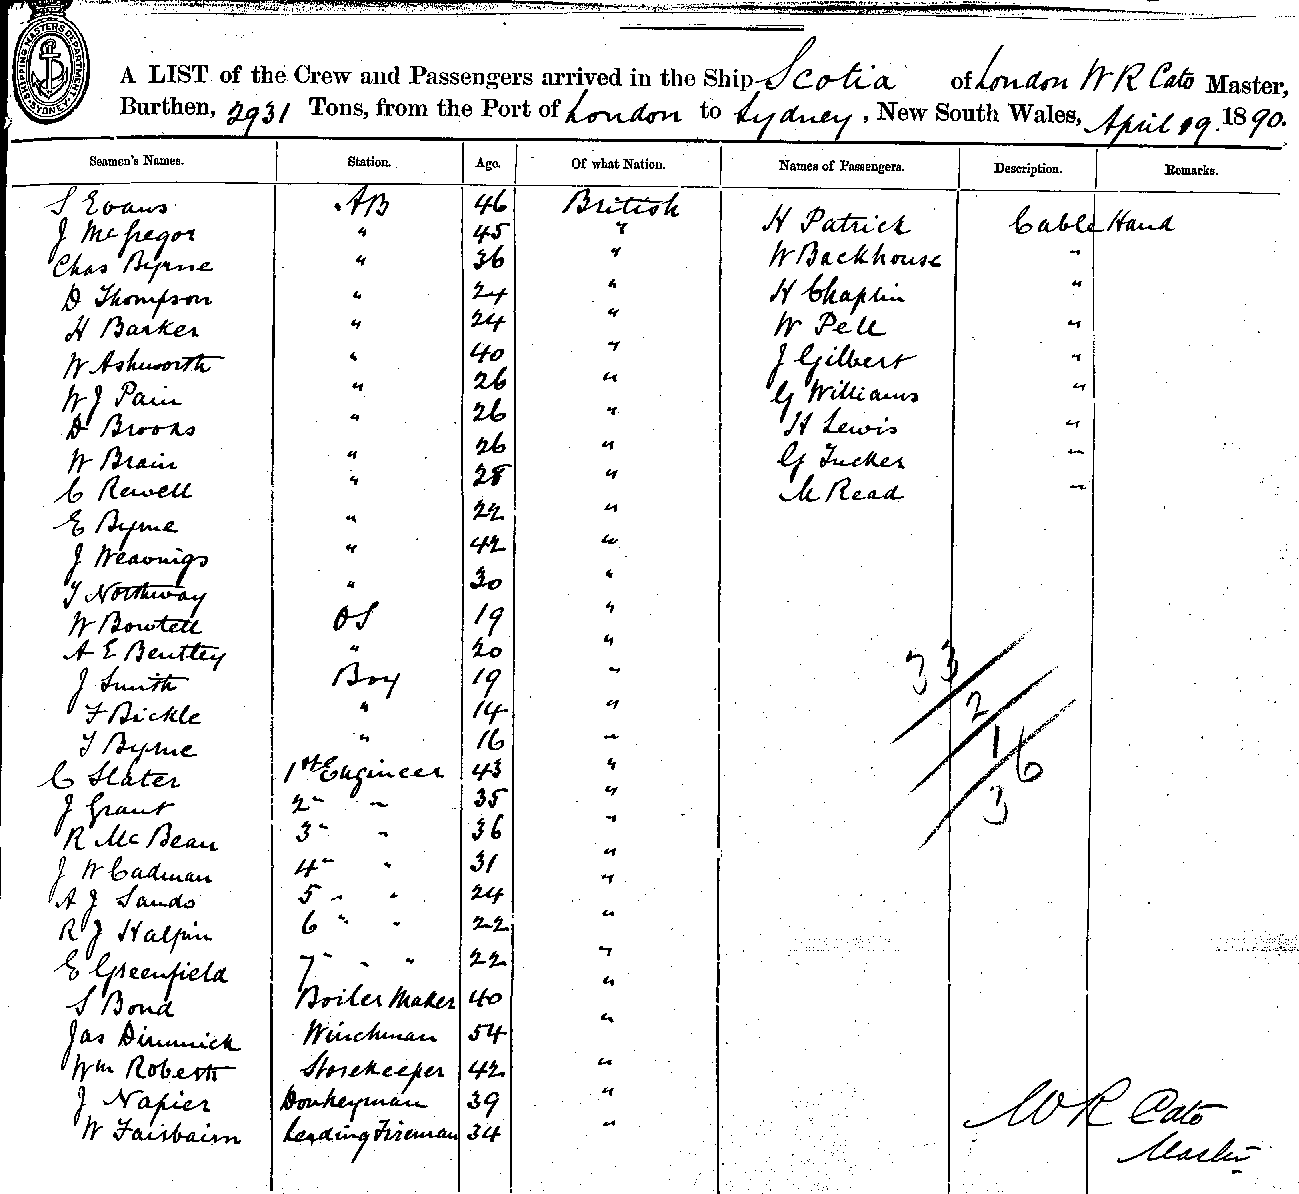 SHIPPING MASTERS DEPARTMENT SYDNEY
A LIST of the Crew and Passengers arrived in the Ship Scotia of London W R Cato Master,
Burthen, 2931 Tons, from the Port of London to Sydney, New South Wales, April 19 1890.
Seamen's Names. Station. Age. Of what Nation. Names of Passengers. Description. Remarks.
S Evans AB 46 British H Patrick Cable Hand
J McGregor " 45 " W Backhouse "
Chas Byrne " 36 " H Chaplin "
D Thompson " 24 " W Pell "
H Barker " 24 " J Gilbert "
W Ashworth " 40 " G Williams "
W J Pain " 26 " H Lewis "
D Brooks " 26 " G Tucker "
W Brain " 26 " M Read "
C Rewell " 28 "
E Byrne " 22 "
J Weavings " 42 "
T Northway " 30 "
W Bowtell OS 19 "
A E Bentley " 20 "
J Smith Boy 19 "
F Bickle " 14 "
T Byrne " 16 "
C Slater 1st Engineer 43 "
J Grant 2 " " 35 "
R McBean 3 " " 36 "
J W Cadman 4 " " 31 "
A J Sands 5 " " 24 "
R J Halpin 6 " " 22 "
E Greenfield 7 " " 22 "
S Bond Boiler Maker 40 "
Jas Dimmick Winchman 54 "
Wm Roberts Storekeeper 42 "
J Napier Donkeyman 39 "
W Fairbairn Leading Fireman 34 "
33
2
16
3
W R Cato
Master